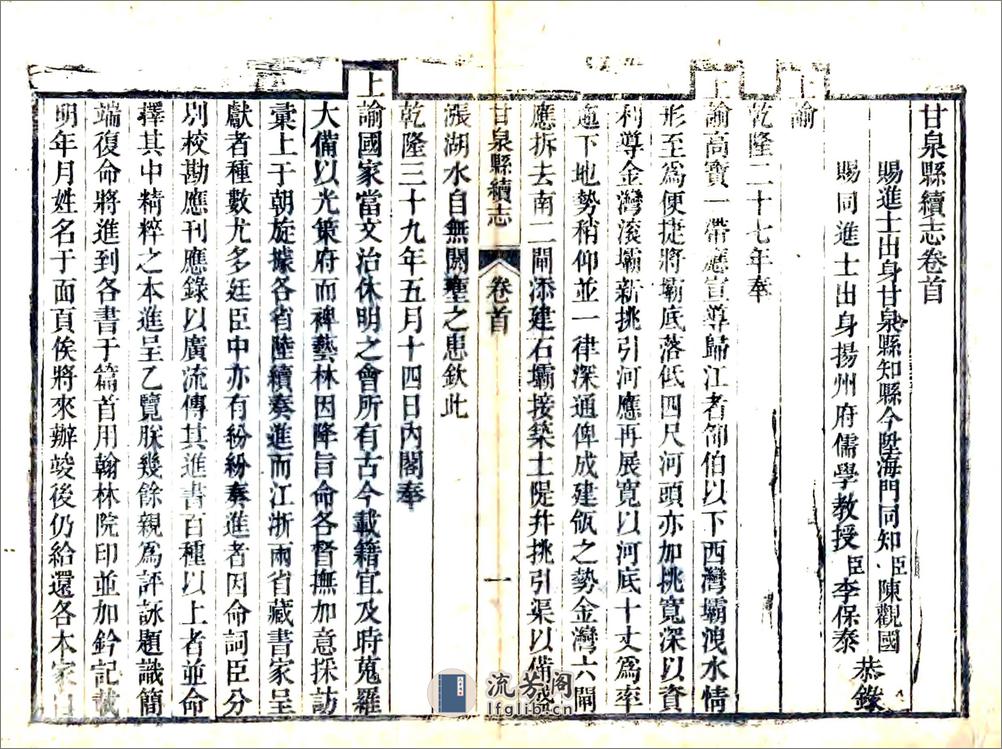 甘泉縣續志卷首
賜進士出身甘泉縣知縣今陞海門同知臣陳觀國
賜同進士出身揚州府儒學教授臣李保泰
恭錄
上
諭
乾隆二十七年奉
上
諭高寶一帶應宣導歸江者卽伯以下西灣壩洩水情
形至爲便捷將壩底落低四尺河頭亦加挑寬深以資
利導金灣滾壩新挑引河應再展寬以河底十丈爲率
迤下地勢稍仰並一律深通俾成建瓴之勢金灣六閘
應拆去南二閘添建石壩接築土隄幷挑引渠以備盛
甘泉縣續志 卷首 一
漲湖水自無閼壅之患欽此
乾隆三十九年五月十四日內閣奉
上諭國家當文治休明之會所有古今載籍宜及時蒐羅
大備以光策府而裨藝林因降旨命各督撫加意採訪
彙上于朝旋據各省陸續奏進而江浙兩省藏書家呈
獻者種數尤多廷臣中亦有紛紛奏進者因命詞臣分
別校勘應刊應錄以廣流傳其進書百種以上者並命
擇其中精粹之本進呈乙覽朕幾餘親爲評詠題識簡
端復命將進到各書于篇首用翰林院印並加鈐記載
明年月姓名于面頁俟將來辦竣後仍給還各本家
流芳阁
lfglib.cn